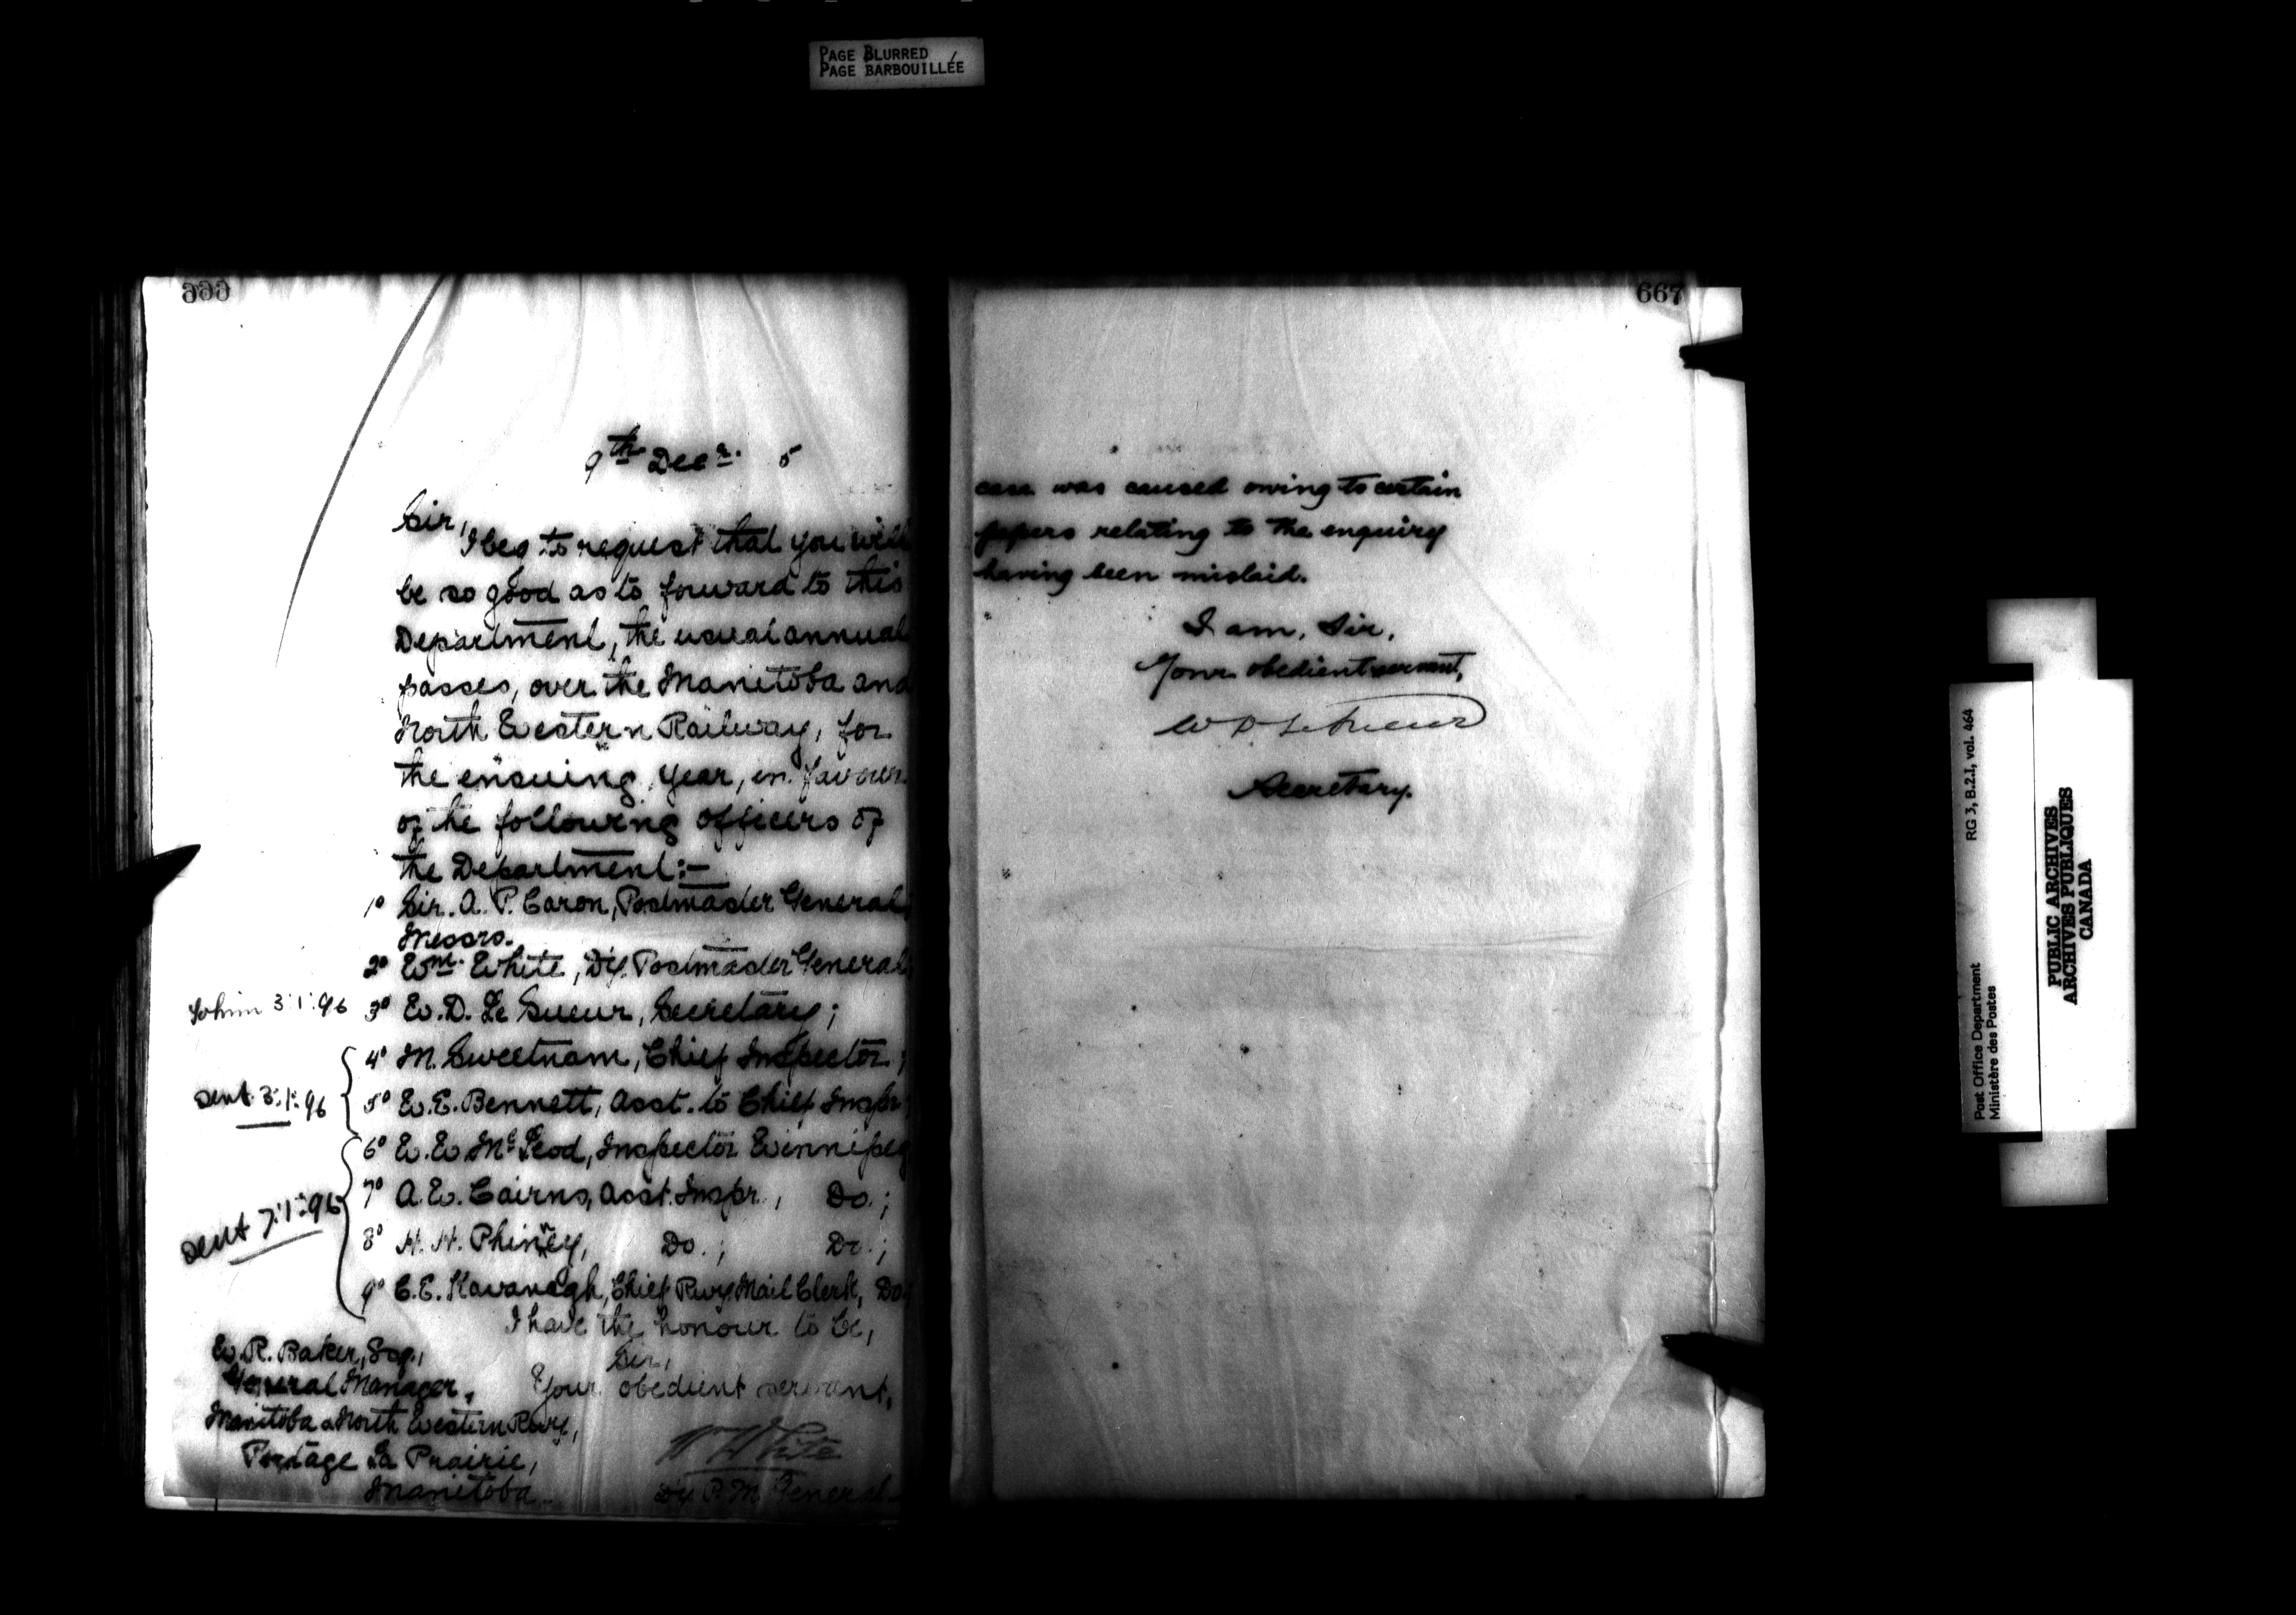 PAGE BLURRED
PAGE BARBOUILLÉE
666
9th Decr. 5
Sir,
I beg to request that you will
be so good as to forward to this
Department, the usual annual
passes, over the Manitoba and
North Western Railway, for
the ensuing year, in favour
of the following officers of
the Department:—
1° Sir. A. P. Caron, Postmaster General;
Messrs.
2° Wm. White, Dy. Postmaster General;
To him 3:1:96 3° W. D. Le Sueur, Secretary;
4° M. Sweetnam, Chief Inspector;
sent 3:1:96 5° W. E. Bennett, Asst. to Chief Inspr
6° W. W. McLeod, Inspector Winnipeg
7° A. W. Cairns, Asst. Inspr., Do.;
sent 7:1:96
8° H. H. Phinney, Do.; Do.;
9° C. E. Kavanagh, Chief Rwy Mail Clerk, Do
I have the honour to be,
Sir,
Your obedient servant,
W White
Dy P. M General
W. R. Baker, Esq.,
General Manager,
Manitoba & North Western Rwy,
Portage La Prairie,
Manitoba.
667
case was caused owing to certain
papers relating to the enquiry
having been mislaid.
I am, Sir,
Your obedient servant,
W D LeSueur
Secretary.
Post Office Department
Ministère des Postes
RG 3, B.2.1, vol. 464
PUBLIC ARCHIVES
ARCHIVES PUBLIQUES
CANADA